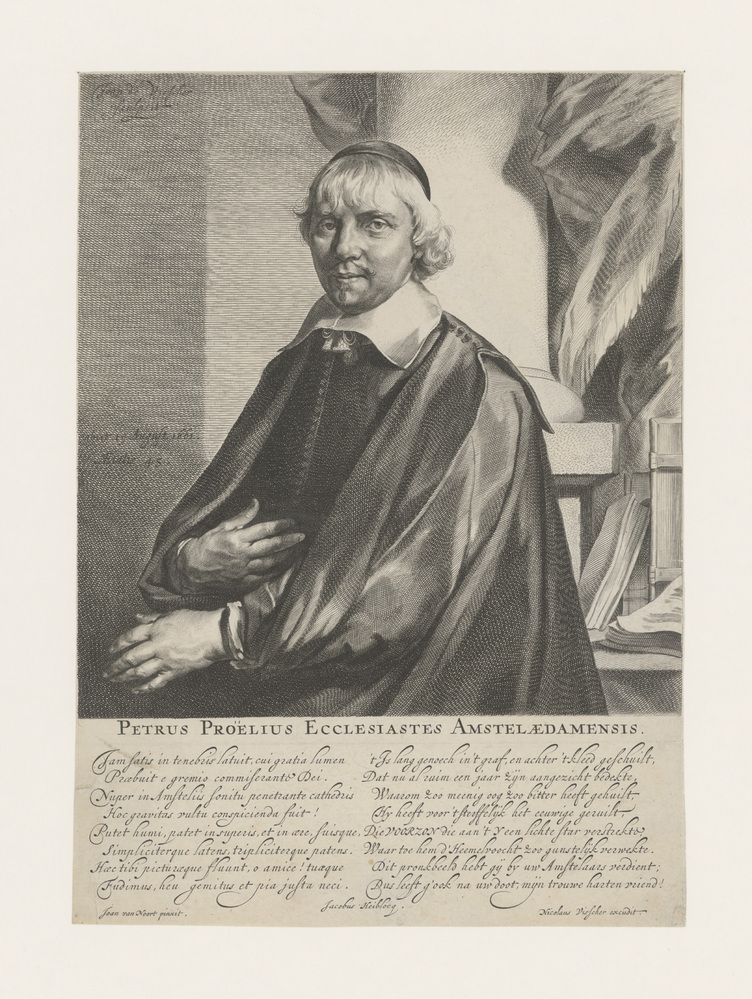 sculpsit
obiit 19 August. 1661.
Ætatis 45.
PETRUS PROËLIUS ECCLESIASTES AMSTELÆDAMENSIS.
Jam satis in tenebris latuit, cui gratia lumen
Præbuit e gremio commiserante Dei.
Nuper in Amstelis sonitu penetrante cathedris
Hoc gravitas vultu conspicienda fuit!
Putet humi, patet in superis, et in ære, suisque,
Simpliciterque latens, tripliciterque patens.
Hæc tibi picturæque fluunt, o amice! tuæque
Fudimus, heu gemitus et pia justa neci.
't Is lang genoech in 't graf, en achter 't kleed geschuilt,
Dat nu al ruim een jaar zijn aangezicht bedekte,
Waarom zoo meenig oog zoo bitter heeft gehuilt.
Hy heeft voor 't stoffelijk het eeuwige geruilt.
Die VOORZON die aan 't Y een lichte star verstrekte,
Waar toe hem d'Heemelvoocht zoo gunstelijk verwekte.
Dit pronkbeeld hebt gy by uw Amstelaars verdient;
Dus leeft g'ook na uw doot, mijn trouwe harten vriend!
Jacobus Heiblocq.
Joan van Noort pinxit.
Nicolaus Visscher excudit